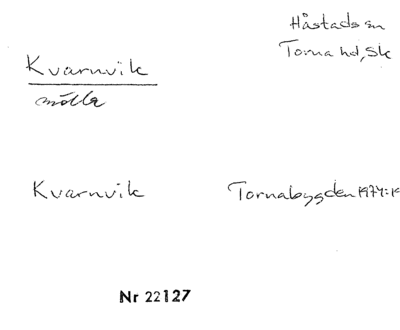 Håstads sn
Torna hd, Sk
Kvarnvik
mölla
Kvarnvik Tornabygden 1974:19
Nr 22127